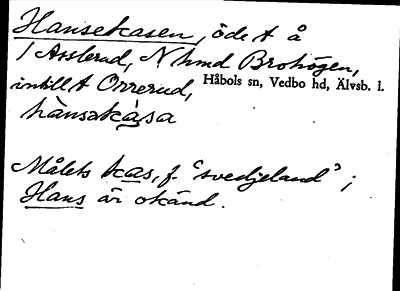 Hansekasen, öde t å
1 Asslerud, N hmd Brohögen,
intill t Orrerud, Håbols sn, Vedbo hd, Älvsb. l.
hànsakàsa
Målets kas, f. "svedjeland";
Hans är okänd.